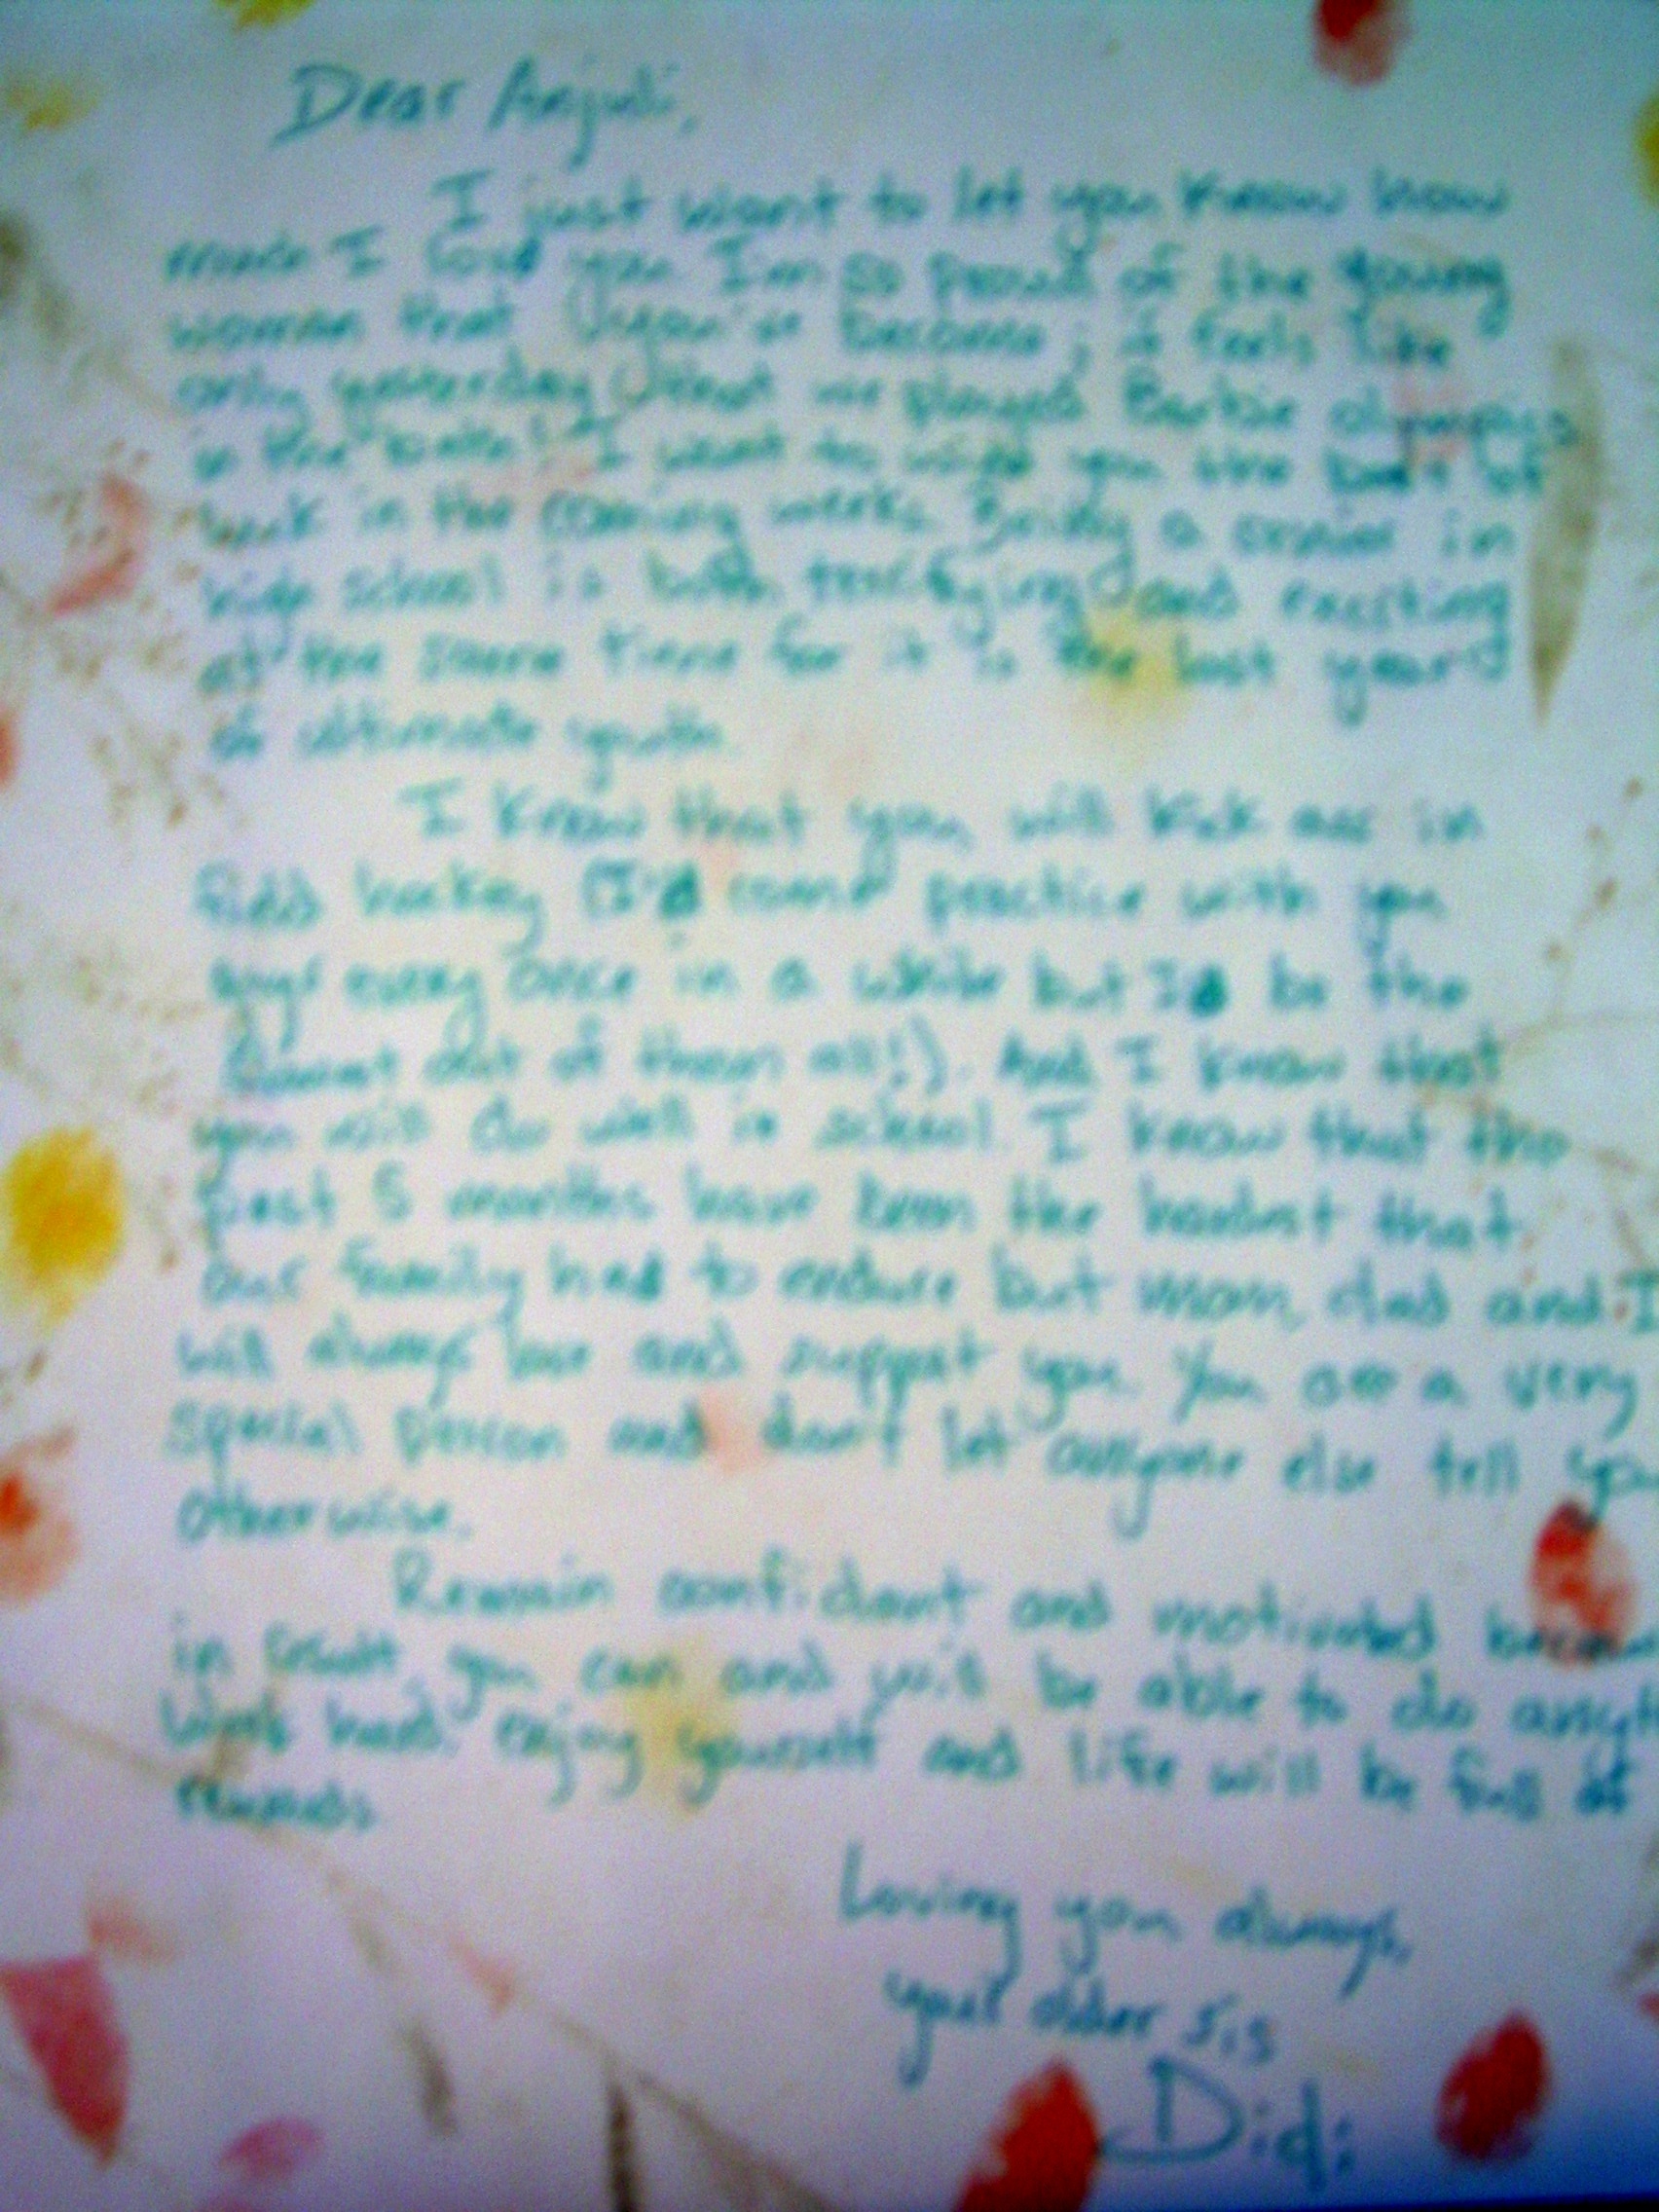 Dear Anjuli,
I just want to let you know how
much I love you. I'm so proud of the young
woman that you've become; it feels like
only yesterday that we played Barbie olympics
in the I want to wish you the best of
luck in the coming weeks. Being a senior in
high school is both terrifying and exciting
at the same time for it is the last year
of ultimate youth.
I know that you will kick ass in
field hockey (I'd come practice with you
guys every once in a while but I'd be the
out of them all!). And I know that
you will do well in school. I know that the
past 5 months have been the hardest that
our family had to endure but mom, dad and I
will always love and support you. You are a very
special person and don't let anyone else tell you
otherwise.
Remain confident and motivated because
in result you can and will be able to do anyth
Work hard, enjoy yourself and life will be full of
rewards.
Loving you always,
your older sis
Didi